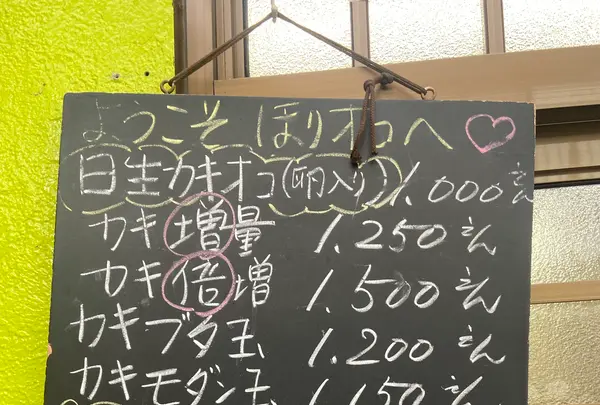 ようこそ ほりオコへ
日生カキオコ(卵入り) 1.000えん
カキ増量 1.250えん
カキ倍増 1.500えん
カキブタ玉 1.200えん
カキモダン玉 1.150えん